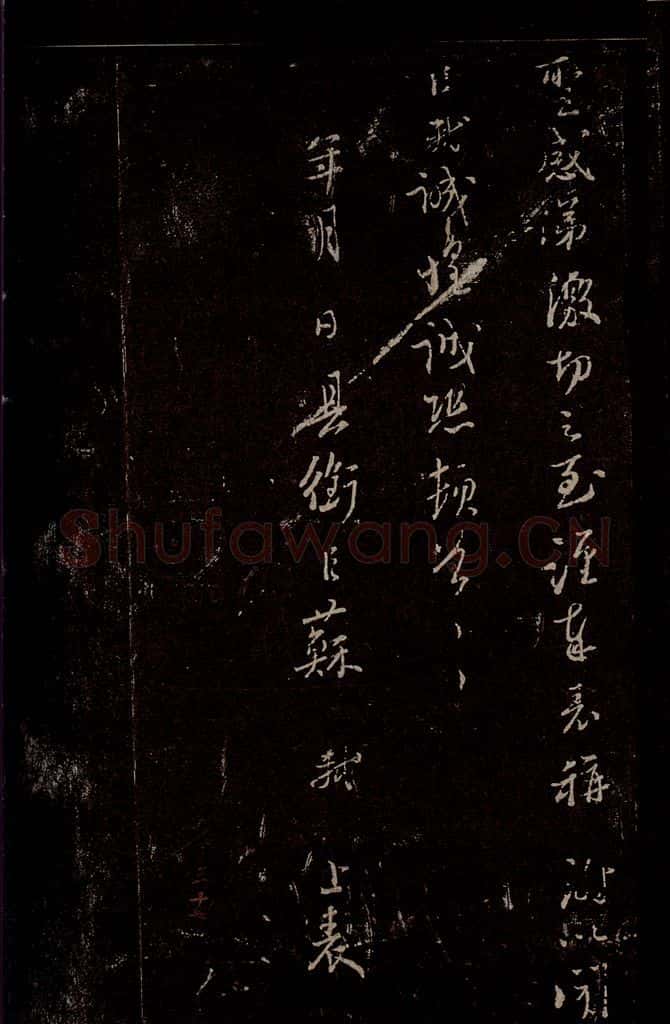 聖感涕激切之至謹奉表稱謝以聞
臣軾誠惶誠恐頓首、、
年月 日具銜臣蘇 軾 上表
Shufawang.CN